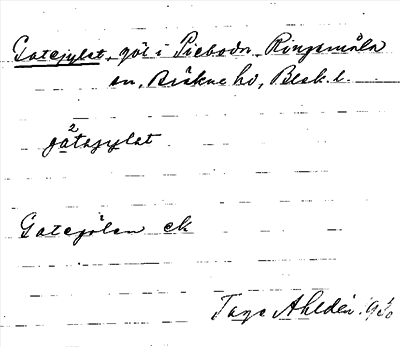 Gatejylet, göl i Siebodn Ringamåla
sn, Bräkne hd, Blek. l.
gátajylet
Gategölen ek
Tage Ahldén 1930